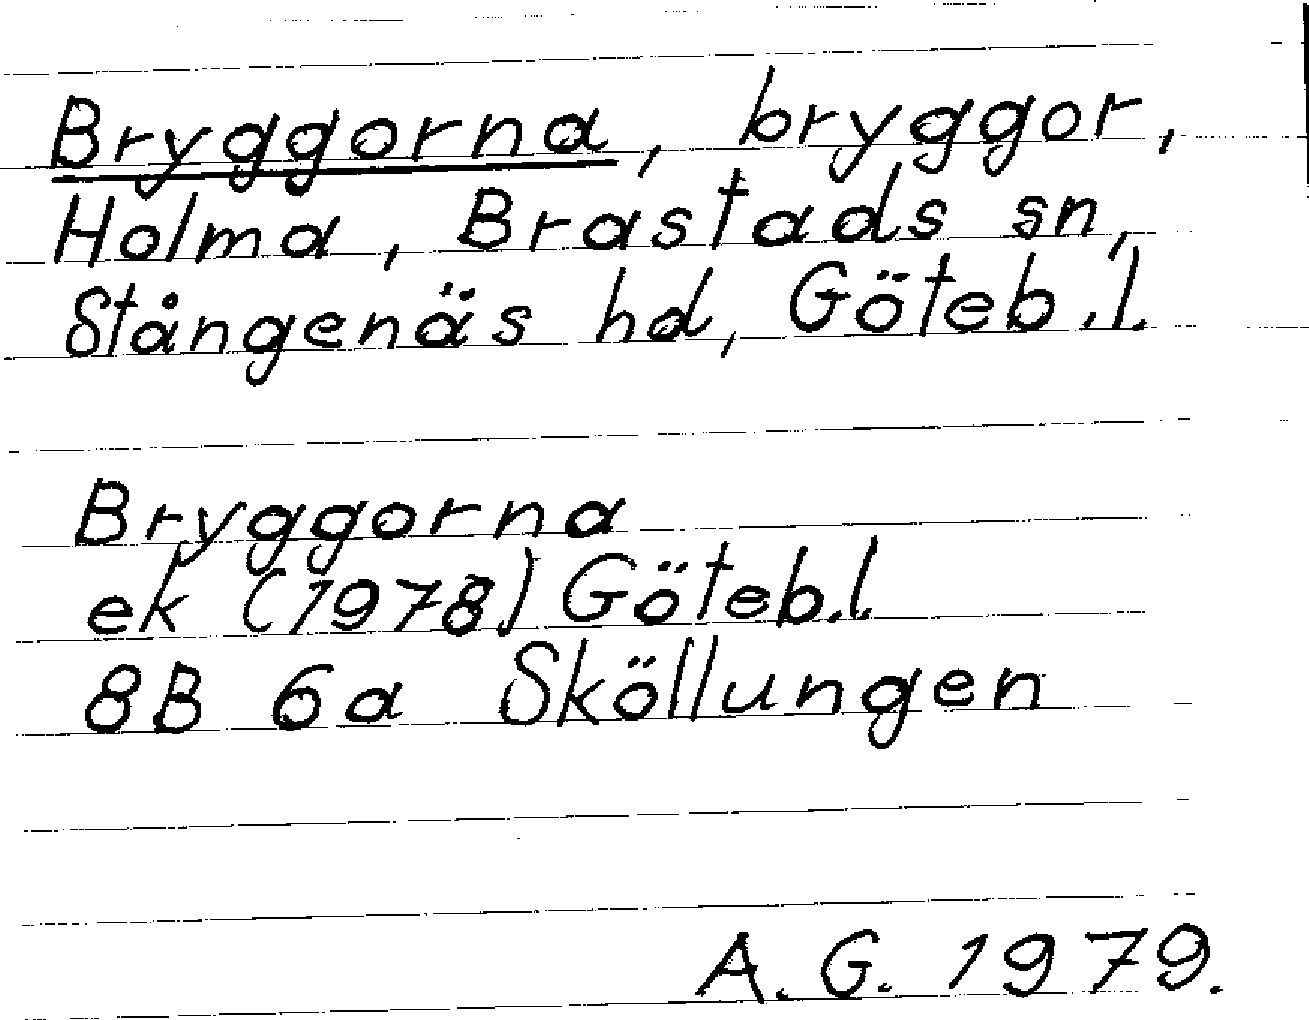 Bryggorna, bryggor,
Holma, Brastads sn,
Stångenäs hd, Göteb.l.
Bryggorna
ek (1978) Göteb.l.
8B 6a Sköllungen
A.G. 1979.